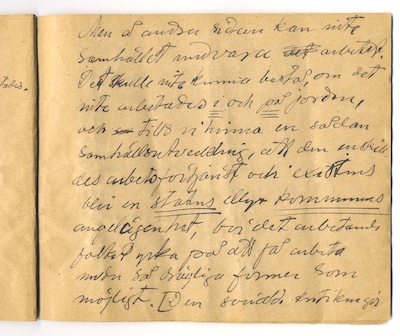 Men å andra sidan kan inte
samhället undvara det arbetet.
Det skulle inte kunna bestå, om det
inte arbetades i och på jorden,
och tills vi hinna en sådan
samhällsutveckling, att den enskil
des arbetsförtjänst och existens
blir en statens eller kommunens
angelägenhet, bör det arbetande
folket yrka på att få arbeta
under så drägliga former som
möjligt. [Den